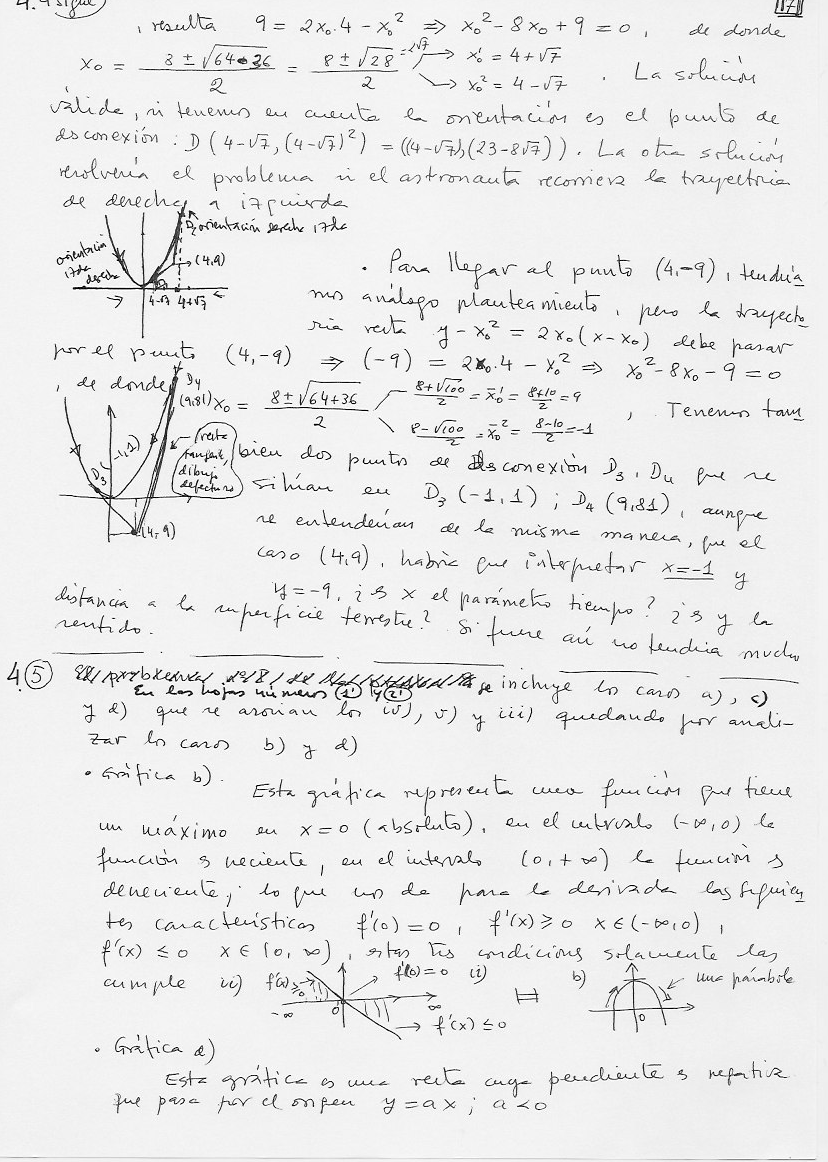 4.4 sigue)
17
, resulta 9 = 2x₀·4 - x₀² ⇒ x₀² - 8x₀ + 9 = 0 , de donde
x₀ = (8 ± √(64-36))/2 = (8 ± √28)/2 =2√7 → x₀¹ = 4+√7
→ x₀² = 4-√7 . La solución
válida, si tenemos en cuenta la orientación es el punto de
desconexión : D (4-√7, (4-√7)²) = ((4-√7), (23-8√7)) . La otra solución
resolvería el problema si el astronauta recorriera la trayectoria
de derecha a izquierda
D₂ orientación derecha izda
orientación izda derecha
(4,9)
4-√7 4+√7
· Para llegar al punto (4,-9), tendría
mos análogo planteamiento, pero la trayecto
ria recta y - x₀² = 2x₀(x-x₀) debe pasar
por el punto (4,-9) ⇒ (-9) = 2x₀·4 - x₀² ⇒ x₀² - 8x₀ - 9 = 0
, de donde x₀ = (8 ± √(64+36))/2 (8+√100)/2 = x̄₀¹ = (8+10)/2 = 9
(8-√100)/2 = x̄₀² = (8-10)/2 = -1 , . Tenemos tam
D₄ (9,81)
D₃(-1,1)
recta tangente, dibujo defectuoso
(4,-9)
bién dos puntos de desconexión D₃, D₄ que se
sitúan en D₃ (-1,1) ; D₄ (9,81), aunque
se entenderían de la misma manera, que el
caso (4,9), habría que interpretar x=-1 y
y=-9, ¿es x el parámetro tiempo? ¿es y la
distancia a la superficie terrestre? Si fuere así no tendría mucho
sentido.
4.5
En las hojas números (1') y (2') se incluye los casos a), c)
y d) que se asocian los iv), v) y iii) quedando por anali-
zar los casos b) y d)
· Gráfica b).
Esta gráfica representa una función que tiene
un máximo en x=0 (absoluto), en el intervalo (-∞,0) la
función es creciente, en el intervalo (0,+∞) la función es
decreciente; lo que nos da para la derivada las siguien
tes características f'(0)=0 , f'(x) ≥ 0 x∈(-∞,0) ,
f'(x) ≤ 0 x∈(0,∞) , estas tres condiciones solamente las
cumple ii) f'(x) ≥ 0 f'(0)=0 ii) b) una parábola
-∞ 0 ∞ f'(x) ≤ 0 0
· Gráfica d)
Esta gráfica es una recta cuya pendiente es negativa
que pasa por el origen y = ax ; a < 0